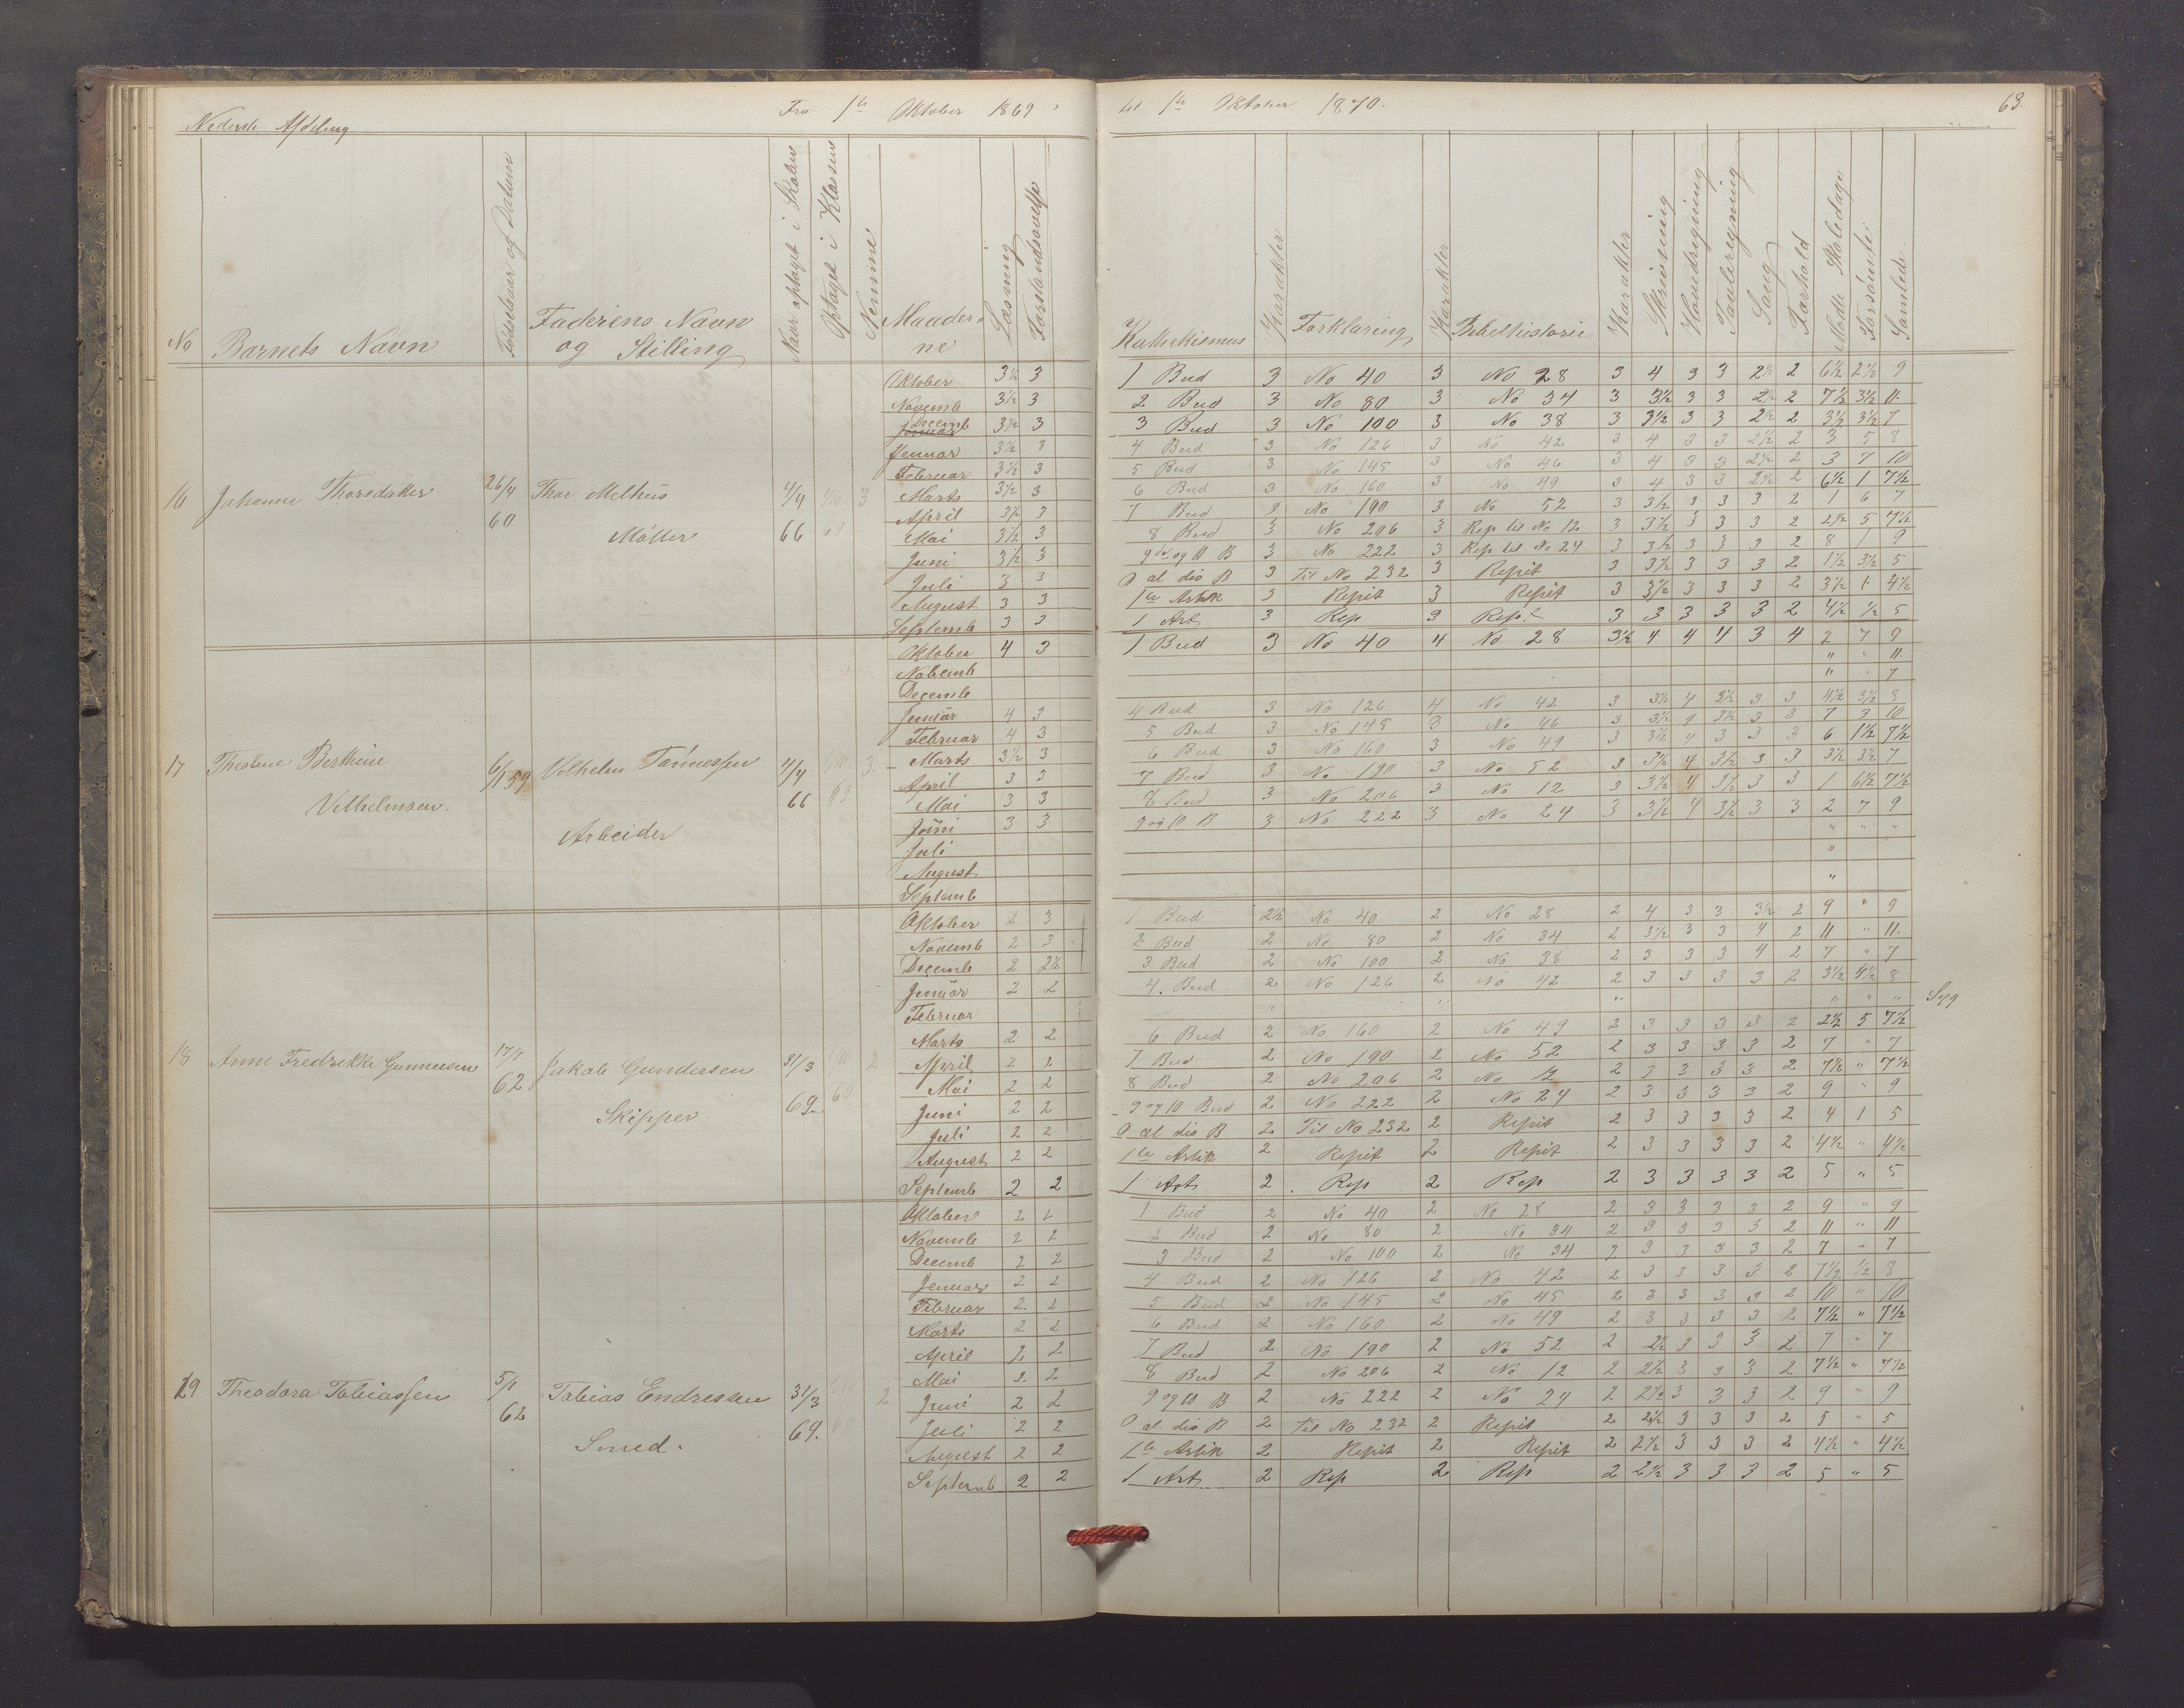 Nederste Afdeling
Fra 1te Oktober 1869
til 1te Oktober 1870.
63.
No
Barnets Navn
Fødselsaar og Datum
Faderens Navn
og Stilling
Naar optaget i Skolen
Optaget i Klassen
Nemme
Maader-
ne
Læsning
Forstandsøvelse
Kathekismus
Karakter
Forklaring
Karakter
Bibelhistorie
Karakter
Skrivning
Hovedregning
Tavleregning
Sang
Forhold
Mødte Skoledage
Forsømte
Samlede
16 Johanne Thorsdatter 26/4 60 Thor Melhus Møller 4/4 66 1/10 69 3
Oktober 3½ 3 1 Bud 3 No 40 3 No 28 3 4 3 3 2½ 2 6½ 2½ 9
Novemb 3½ 3 2 Bud 3 No 80 3 No 34 3 3½ 3 3 2½ 2 7½ 3½ 11
Januar Decemb 3½ 3 3 Bud 3 No 100 3 No 38 3 3½ 3 3 2½ 2 3½ 3½ 7
Jenuar 3½ 3 4 Bud 3 No 126 3 No 42 3 4 3 3 2½ 2 3 5 8
Februar 3½ 3 5 Bud 3 No 145 3 No 46 3 4 3 3 2½ 2 3 7 10
Marts 3½ 3 6 Bud 3 No 160 3 No 49 3 4 3 3 2½ 2 6½ 1 7½
April 3½ 3 7 Bud 3 No 190 3 No 52 3 3½ 3 3 3 2 1 6 7
Mai 3½ 3 8 Bud 3 No 206 3 Rep til No 12 3 3½ 3 3 3 2 2½ 5 7½
Juni 3½ 3 9de og 10 B 3 No 222 3 Rep til No 24 3 3½ 3 3 3 2 8 1 9
Juli 3 3 O al dis B 3 Til No 232 3 Repit 3 3½ 3 3 3 2 1½ 3½ 5
August 3 3 1te Artik 3 Repit 3 Repit 3 3½ 3 3 3 2 3½ 1 4½
Septemb 3 3 1 Art 3 Rep 3 Rept 3 3 3 3 3 2 4½ ½ 5
17 Theoline Berthine Velhelmsen. 6/1 59 Velhelm Tønnessen Arbeider 4/4 66 1/10 69 3
Oktober 4 3 1 Bud 3 No 40 4 No 28 3½ 4 4 4 3 4 2 7 9
Nobemb " " 11.
Decemb " " 7
Jenuar 4 3 4 Bud 3 No 126 4 No 42 3 3½ 4 3½ 3 3 4½ 3½ 8
Februar 4 3 5 Bud 3 No 145 3 No 46 3 3½ 4 3½ 3 3 7 3 10
Marts 3½ 3 6 Bud 3 No 160 3 No 49 3 3½ 4 3 3 3 6 1½ 7½
April 3 3 7 Bud 3 No 190 3 No 52 3 3½ 4 3½ 3 3 3½ 3½ 7
Mai 3 3 8 Bud 3 No 206 3 No 12 3 3½ 4 3½ 3 3 1 6½ 7½
Juni 3 3 9 og 10 B 3 No 222 3 No 24 3 3½ 4 3½ 3 3 2 7 9
Juli " " "
August "
Septemb "
18 Anne Fredrikke Gunnersen 17/7 62 Jakob Gundersen Skipper 31/3 69. 1/10 69 2
Oktober 2 3 1 Bud 2½ No 40 2 No 28 2 4 3 3 3½ 2 9 " 9
Novemb 2 3 2 Bud 2 No 80 2 No 34 2 3½ 3 3 4 2 11 " 11.
Decemb 2 2½ 3 Bud 2 No 100 2 No 38 2 3 3 3 4 2 7 " 7
Jenuar 2 2 4. Bud 2 No 126 2 No 42 2 3 3 3 3 2 3½ 4½ 8
Februar " " " " " " Syg
Marts 2 2 6 Bud 2 No 160 2 No 49 2 3 3 3 3 2 2½ 5 7½
April 2 2 7 Bud 2 No 190 2 No 52 2 3 3 3 3 2 7 " 7
Mai 2 2 8 Bud 2 No 206 2 No 12 2 3 3 3 3 2 7½ " 7½
Juni 2 2 9 og 10 Bud 2 No 222 2 No 24 2 3 3 3 3 2 9 " 9
Juli 2 2 O al dis B 2 Til No 232 2 Repit 2 3 3 3 3 2 4 1 5
August 2 2 1te Artik 2 Repit 2 Repit 2 3 3 3 3 2 4½ " 4½
Septemb 2 2 1 Art 2 Rep 2 Rep 2 3 3 3 3 2 5 " 5
19 Theodora Tobiassen 5/1 62 Tobias Endressen Smed. 31/3 69. 1/10 69 2
Oktober 2 2 1 Bud 2 No 40 2 No 28 2 3 3 3 3 2 9 " 9
Novemb 2 2 2 Bud 2 No 80 2 No 34 2 3 3 3 3 2 11 " 11
Decemb 2 2 3 Bud 2 No 100 2 No 34 2 3 3 3 3 2 7 " 7
Jenuar 2 2 4 Bud 2 No 126 2 No 42 2 3 3 3 3 2 7½ ½ 8
Februar 2 2 5 Bud 2 No 145 2 No 45 2 3 3 3 3 2 10 " 10
Marts 2 2 6 Bud 2 No 160 2 No 49 2 3 3 3 3 2 7½ " 7½
April 2 2 7 Bud 2 No 190 2 No 52 2 2½ 3 3 3 2 7 " 7
Mai 2 2 8 Bud 2 No 206 2 No 12 2 2½ 3 3 3 2 7½ " 7½
Juni 2 2 9 og 10 B 2 No 222 2 No 24 2 2½ 3 3 3 2 9 " 9
Juli 2 2 O al dis B 2 Til No 232 2 Repit 2 2½ 3 3 3 2 5 " 5
August 2 2 1te Artik 2 Repit 2 Repit 2 2½ 3 3 3 2 4½ " 4½
Septemb 2 2 1 Art 2 Rep 2 Rep 2 2½ 3 3 3 2 5 " 5